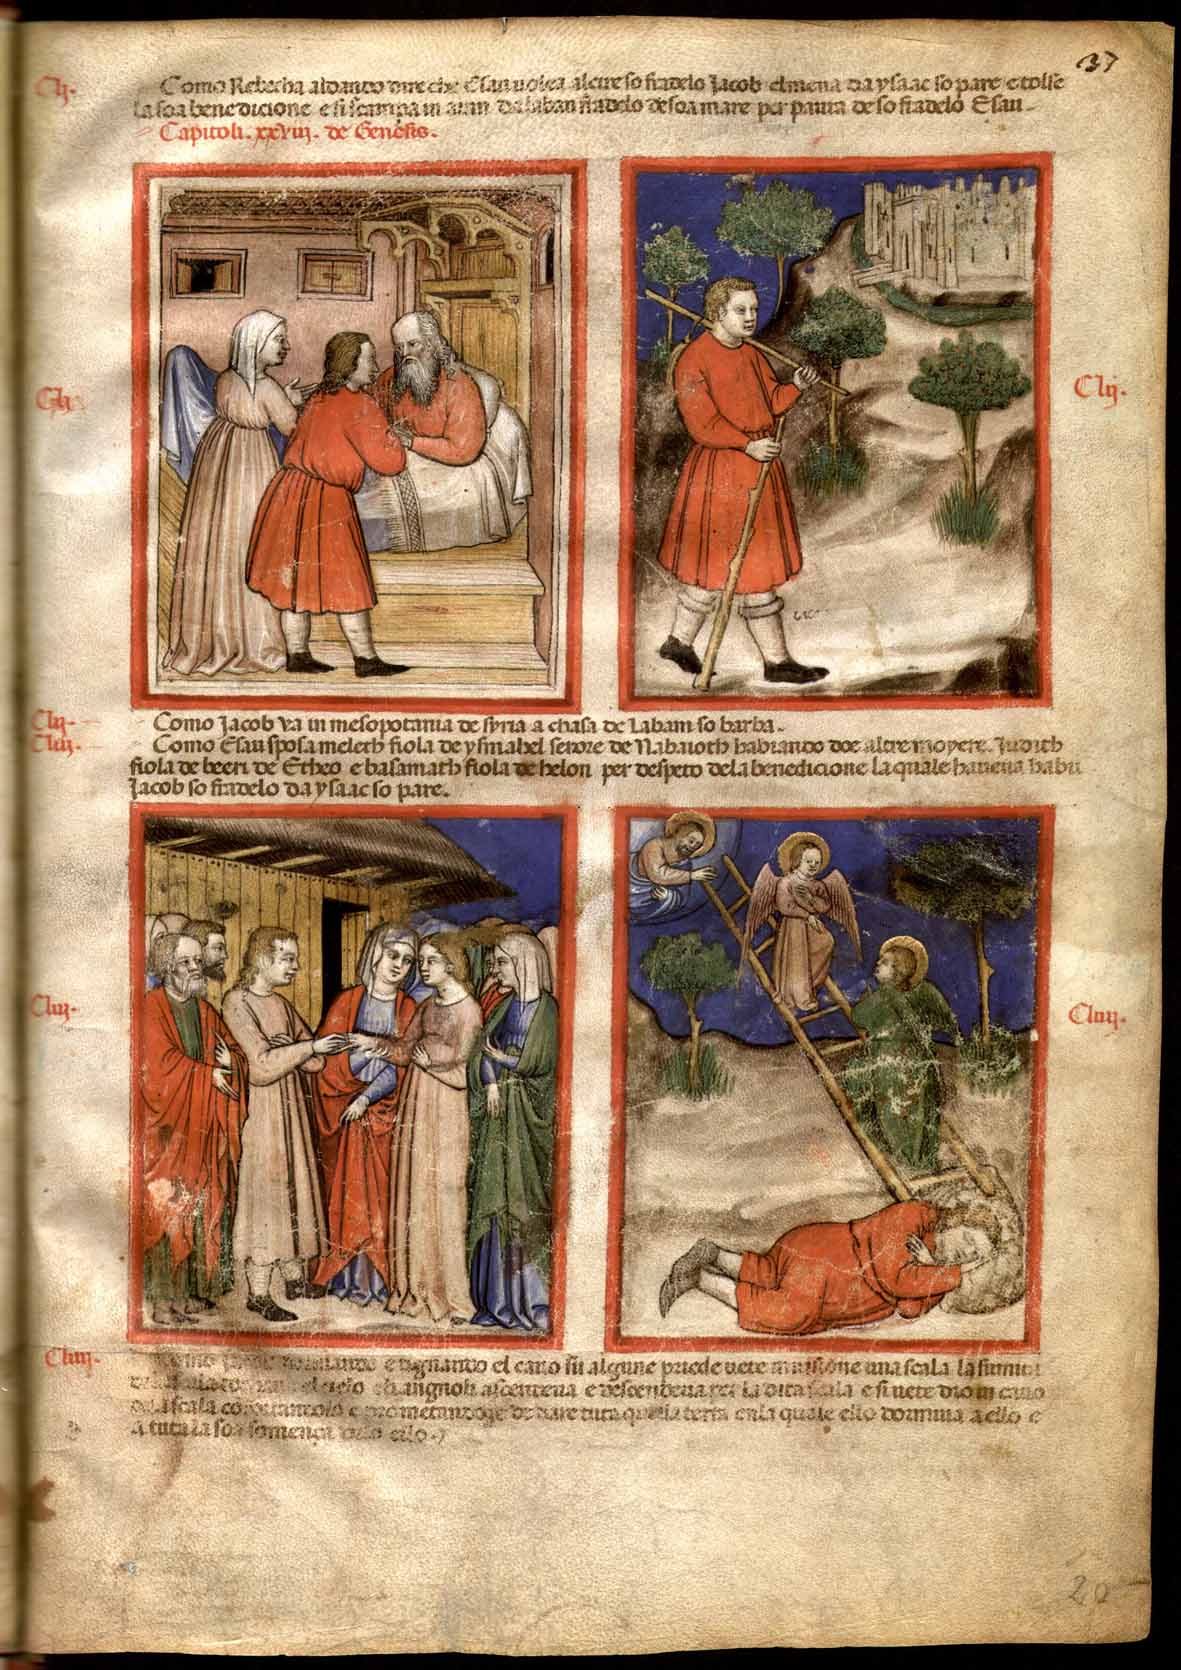 37
Clj.
Como Rebecha aldando dire che Esau voleа alcire so fradelo Jacob elmena da ysaac so pare e tolse
la soa benedicione e si scampa in aran da laban fradelo de soa mare per paura de so fradelo Esau.
Capitoli. xxviij. de Genesis.
Clj.
Clij.
Clij.
Como Jacob va in mesopotamia de syria a chasa de Labam so barba.
Cliij.
Como Esau sposa melech fiola de ysmahel serore de Nabaioth habiando doe altre moyere. Judith
fiola de beeri de Etheo e basamath fiola de helon per despeto dela benedicione la quale haveva habu
Jacob so fradelo da ysaac so pare.
Cliij.
Cliiij.
Cliiij.
Como Jacob e el cavo su alqune priede vete in visione una scala la
cielo e li angnoli ascendeva e descendeva per la dita scala e si vete dio in cavo
dela scala e prometandoge de dare tuta quella terra in la quale ello dormiva a ello e
a tuta la soa somença dito ello.
20